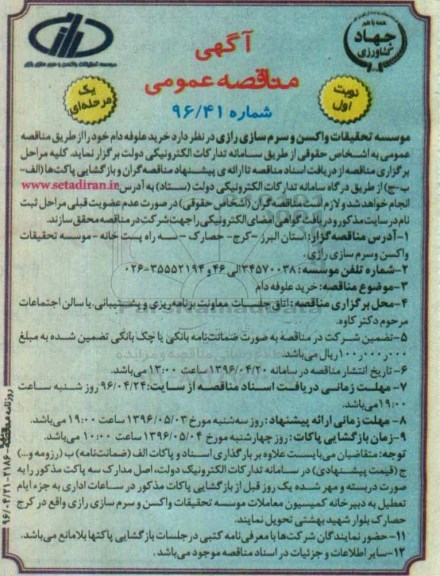 همه با هم
جهاد
کشاورزی
موسسه تحقیقات واکسن و سرم سازی رازی
آگهی
مناقصه عمومی
شماره ۹۶/۴۱
نوبت
اول
یک
مرحله‌ای
موسسه تحقیقات واکسن و سرم سازی رازی در نظر دارد خرید علوفه دام خود را از طریق مناقصه
عمومی به اشخاص حقوقی از طریق سامانه تدارکات الکترونیکی دولت برگزار نماید. کلیه مراحل
برگزاری مناقصه از دریافت اسناد مناقصه تا ارائه ی پیشنهاد مناقصه گران و بازگشایی پاکت‌ها (الف-
ب-ج) از طریق درگاه سامانه تدارکات الکترونیکی دولت (ستاد) به آدرس www.setadiran.ir
انجام خواهد شد و لازم است مناقصه گران (اشخاص حقوقی) در صورت عدم عضویت قبلی مراحل ثبت
نام در سایت مذکور و دریافت گواهی امضای الکترونیکی را جهت شرکت در مناقصه محقق سازند.
۱-آدرس مناقصه گزار: استان البرز -کرج- حصارک -سه راه پست خانه - موسسه تحقیقات
واکسن و سرم سازی رازی.
۲-شماره تلفن موسسه: ۳۴۵۷۰۰۳۸ الی ۴۶ و ۳۵۵۵۲۱۹۴-۰۲۶
۳-موضوع مناقصه: خرید علوفه دام
۴- محل برگزاری مناقصه: اتاق جلسات معاونت برنامه ریزی و پشتیبانی، یا سالن اجتماعات
مرحوم دکتر کاوه.
۵-تضمین شرکت در مناقصه به صورت ضمانت‌نامه بانکی یا چک بانکی تضمین شده به مبلغ
۱۰۰،۰۰۰،۰۰۰ ریال می‌باشد.
۶- تاریخ انتشار مناقصه در سامانه ۱۳۹۶/۰۴/۲۰ ساعت ۱۳:۰۰ می‌باشد.
۷- مهلت زمانی دریافت اسناد مناقصه از سایت: ۹۶/۰۴/۲۴ روز شنبه ساعت
۱۹:۰۰ می‌باشد.
۸- مهلت زمانی ارائه پیشنهاد: روز سه‌شنبه مورخ ۱۳۹۶/۰۵/۰۳ ساعت ۱۹:۰۰ می‌باشد.
۹- زمان بازگشایی پاکات: روز چهارشنبه مورخ ۱۳۹۶/۰۵/۰۴ ساعت ۱۰:۰۰ می‌باشد.
توجه: متقاضیان می‌بایست علاوه بر بارگذاری اسناد و پاکات الف (ضمانت‌نامه) ب (رزومه و...)
ج (قیمت پیشنهادی) در سامانه تدارکات الکترونیک دولت، اصل مدارک سه پاکت مذکور را به
صورت دربسته و مهر شده یک روز قبل از بازگشایی پاکات مذکور در ساعات اداری به جزء ایام
تعطیل به دبیرخانه کمیسیون معاملات موسسه تحقیقات واکسن و سرم سازی رازی واقع در کرج
حصارک بلوار شهید بهشتی تحویل نمایند.
۱۱- حضور نمایندگان شرکت‌ها با معرفی نامه کتبی در جلسات بازگشایی پاکتها بلامانع می‌باشد.
۱۲-سایر اطلاعات و جزئیات در اسناد مناقصه موجود می‌باشد.